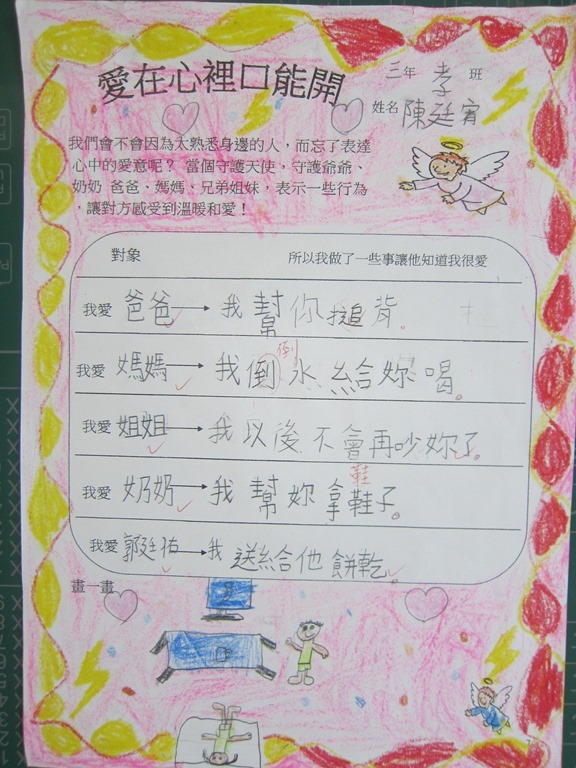 愛在心裡口能開
三年 孝 班
姓名 陳廷宥
我們會不會因為太熟悉身邊的人，而忘了表達
心中的愛意呢？當個守護天使，守護爺爺、
奶奶 爸爸、媽媽、兄弟姐妹，表示一些行為
，讓對方感受到溫暖和愛！
對象 所以我做了一些事讓他知道我很愛
我愛 爸爸 → 我幫你搥背。
倒
我愛 媽媽 → 我倒水給妳喝。
我愛 姐姐 → 我以後不會再吵妳了。
鞋
我愛 奶奶 → 我幫妳拿鞋子。
我愛 郭廷祐 → 我送給他餅乾。
畫一畫